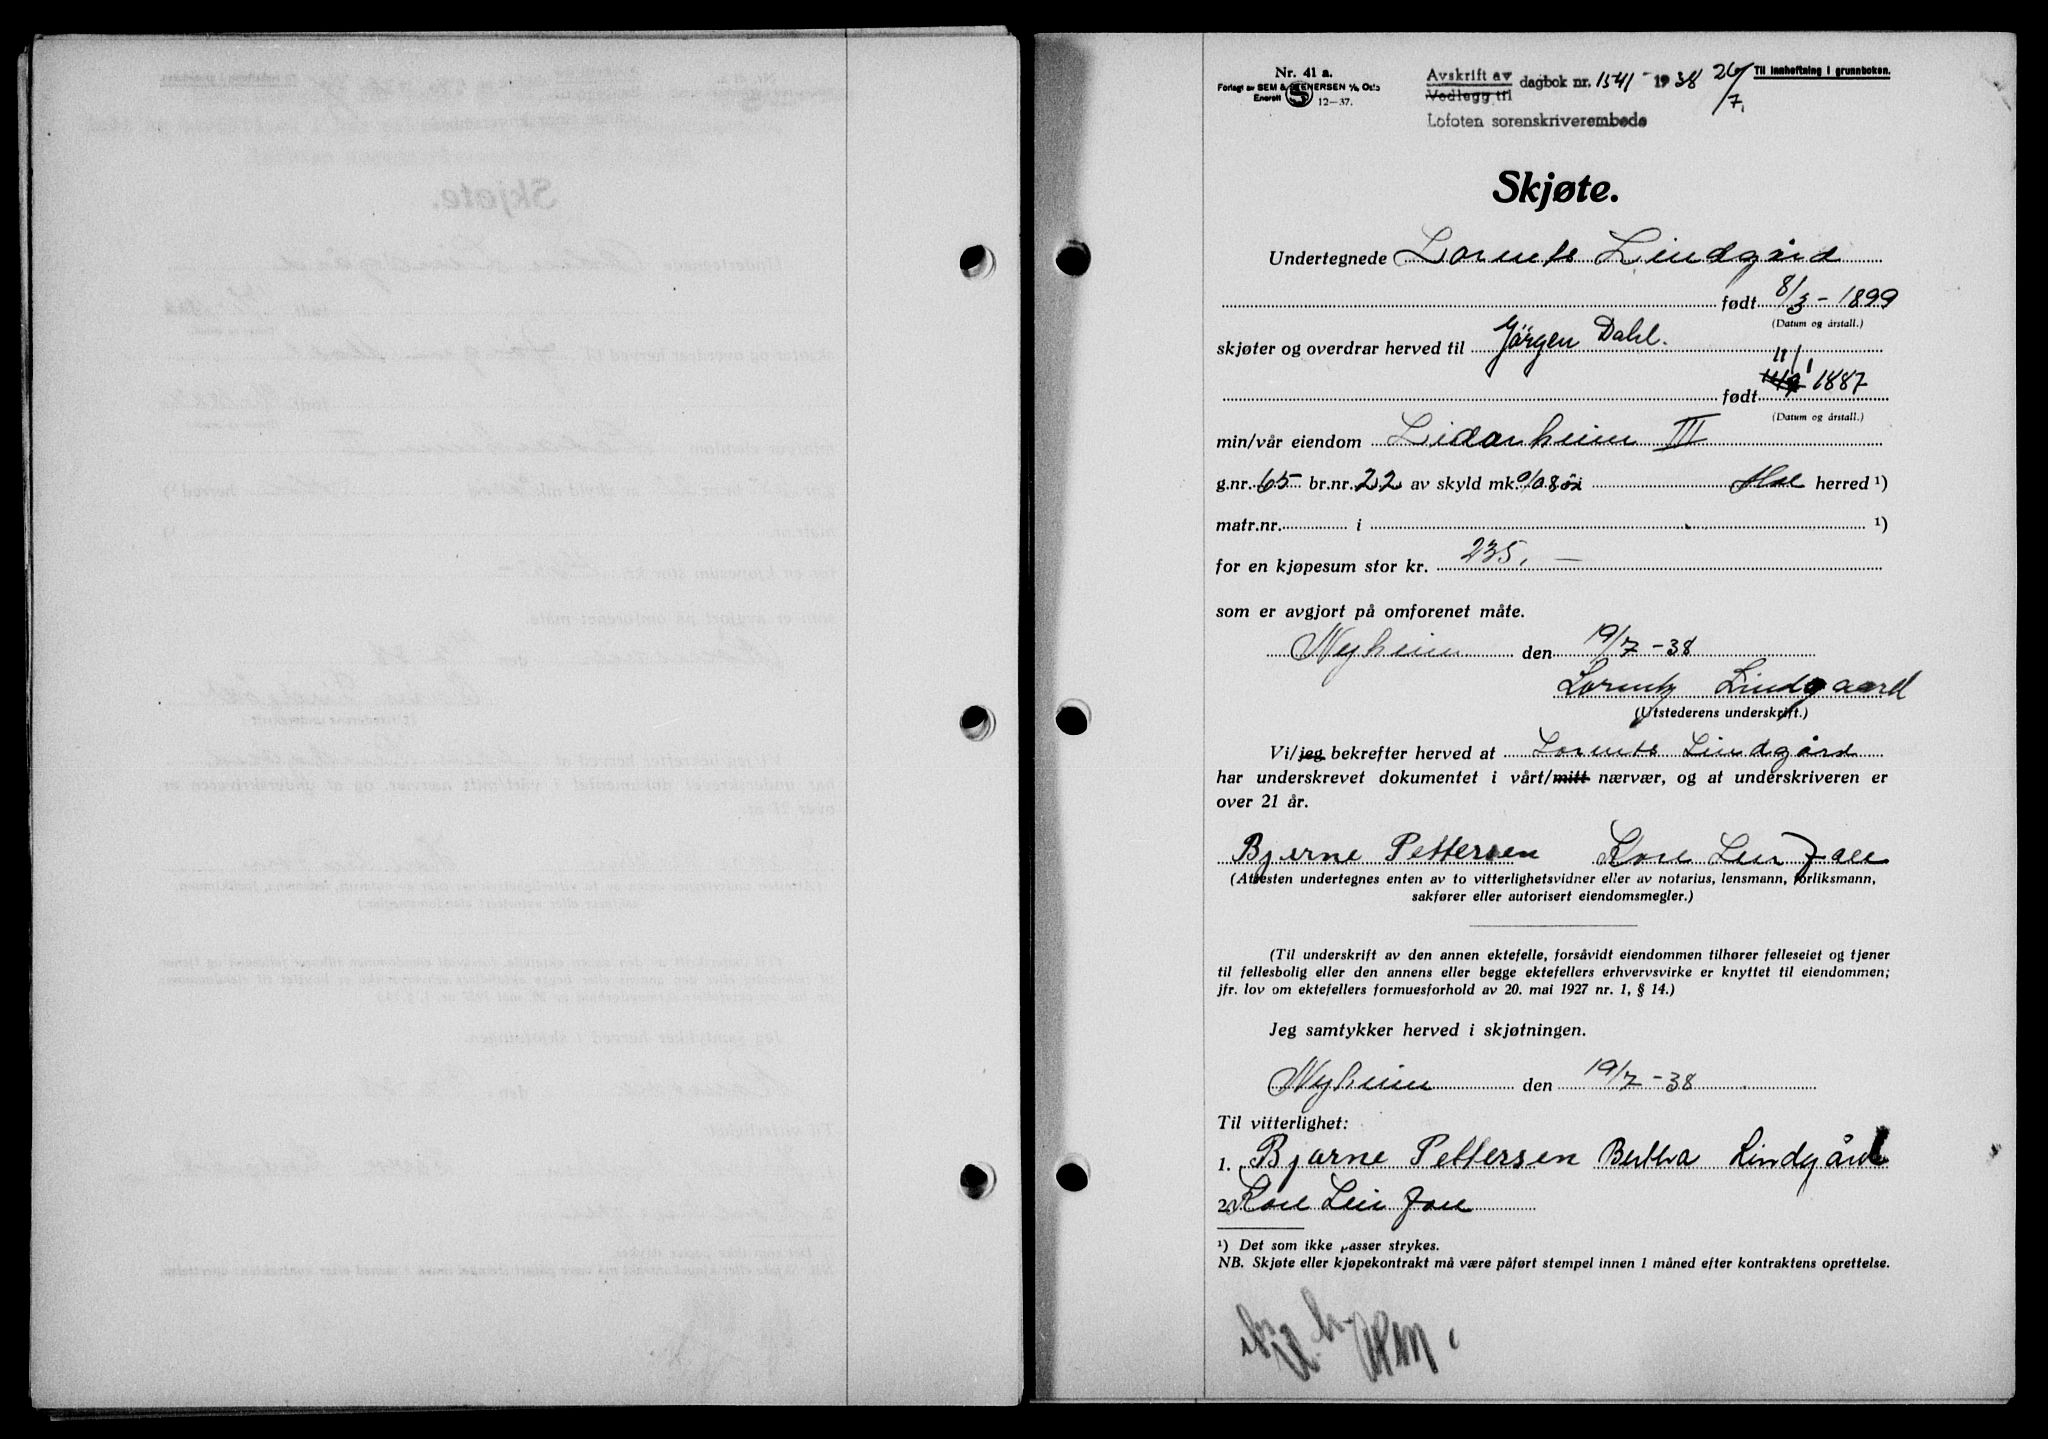 Nr. 41 a.
Forlagt av SEM & STENERSEN A/S, Oslo
Enerett S 12-37.
Avskrift av dagbok nr. 1541 - 1938 26/7. Til innheftning i grunnboken.
Vedlegg til
Lofoten sorenskriverembede
Skjøte.
Undertegnede Lorents Lindgård
født 8/3 - 1899
(Datum og årstall.)
skjøter og overdrar herved til Jörgen Dahl.
født 11/1 1887
(Datum og årstall.)
min/vår eiendom Lidarheim III
g.nr. 65 br.nr. 22 av skyld mk. 0/08 öre Hol herred ¹)
matr.nr. i ¹)
for en kjøpesum stor kr. 235,—
som er avgjort på omforenet måte.
Nyheim den 19/7 - 38
Lorentz Lindgaard
(Utstederens underskrift.)
Vi/jeg bekrefter herved at Lorents Lindgård
har underskrevet dokumentet i vårt/mitt nærvær, og at underskriveren er
over 21 år.
Bjarne Pettersen Kåre
(Attesten undertegnes enten av to vitterlighetsvidner eller av notarius, lensmann, forliksmann,
sakfører eller autorisert eiendomsmegler.)
(Til underskrift av den annen ektefelle, forsåvidt eiendommen tilhører felleseiet og tjener
til fellesbolig eller den annens eller begge ektefellers erhvervsvirke er knyttet til eiendommen;
jfr. lov om ektefellers formuesforhold av 20. mai 1927 nr. 1, § 14.)
Jeg samtykker herved i skjøtningen.
Nyheim den 19/7 - 38
Til vitterlighet:
1. Bjarne Pettersen Bertha Lindgård
2. Kåre
¹) Det som ikke passer strykes.
NB. Skjøte eller kjøpekontrakt må være påført stempel innen 1 måned efter kontraktens oprettelse.